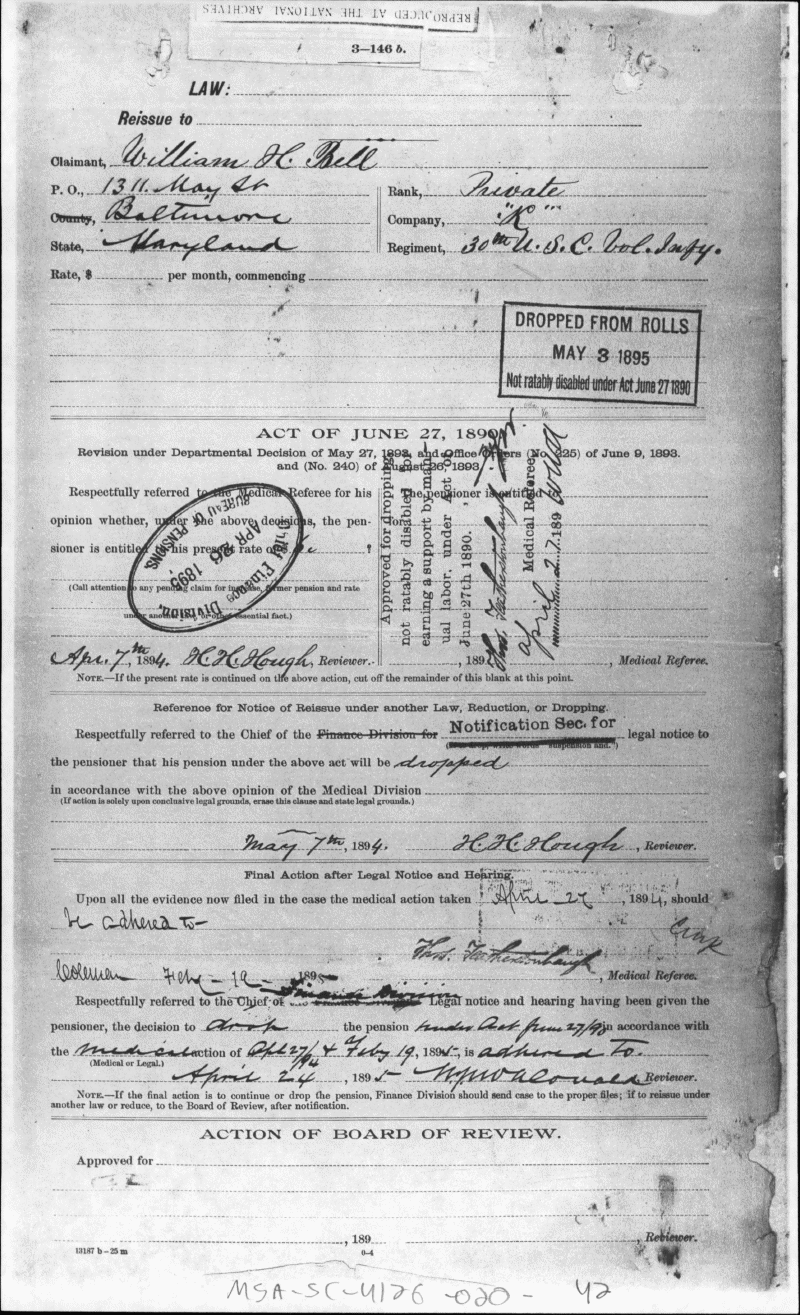 REPRODUCED AT THE NATIONAL ARCHIVES
3—146 b.
LAW:
Reissue to
Claimant, William H. Bell
P. O., 1311. May St
County, Baltimore
State, Maryland
Rank, Private
Company, "K"
Regiment, 30th U. S. C. Vol. Infy.
Rate, $ per month, commencing
DROPPED FROM ROLLS
MAY 3 1895
Not ratably disabled under Act June 27 1890
ACT OF JUNE 27, 1890.
Revision under Departmental Decision of May 27, 1893, and Office Orders (No. 225) of June 9, 1893.
and (No. 240) of August 26, 1893.
Respectfully referred to the Medical Referee for his
opinion whether, under the above decisions, the pen-
sioner is entitled to his present rate of $ ?
(Call attention to any pending claim for increase, former pension and rate
under another law, or other essential fact.)
Chief Finance Division,
APR 26 1895
BUREAU OF PENSIONS.
Apr. 7th, 1894. H. H. Hough, Reviewer.
The pensioner is entitled to
for
Approved for dropping,
not ratably disabled for
earning a support by man-
ual labor, under Act of
June 27th 1890.
Thos. Featherstonhaugh
Medical Referee.
April 27. 189
, 189 , Medical Referee.
NOTE.—If the present rate is continued on the above action, cut off the remainder of this blank at this point.
Reference for Notice of Reissue under another Law, Reduction, or Dropping.
Respectfully referred to the Chief of the Finance Division for Notification Sec. for legal notice to
the pensioner that his pension under the above act will be dropped
in accordance with the above opinion of the Medical Division
(If action is solely upon conclusive legal grounds, erase this clause and state legal grounds.)
May 7th, 1894. H. H. Hough, Reviewer.
Final Action after Legal Notice and Hearing.
Upon all the evidence now filed in the case the medical action taken April 27, 1894, should
be adhered to—
Thos. Featherstonhaugh, Medical Referee.
Coleman Feby - 19 - 1895
Respectfully referred to the Chief of the Finance Division Legal notice and hearing having been given the
pensioner, the decision to drop the pension under Act June 27/90 in accordance with
the medical action of Apl 27/94 & Feby 19, 1895, is adhered to.
(Medical or Legal.)
April 24, 1895 Reviewer.
NOTE.—If the final action is to continue or drop the pension, Finance Division should send case to the proper files; if to reissue under
another law or reduce, to the Board of Review, after notification.
ACTION OF BOARD OF REVIEW.
Approved for
, 189 , Reviewer.
13187 b—25 m 0-4
MSA-SC-4126-020- 42